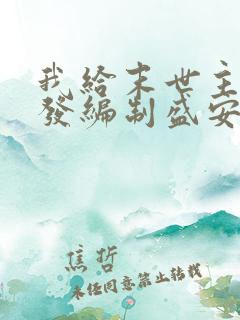 我給末世主
發編制盛安
焦哲
未经同意禁止转载